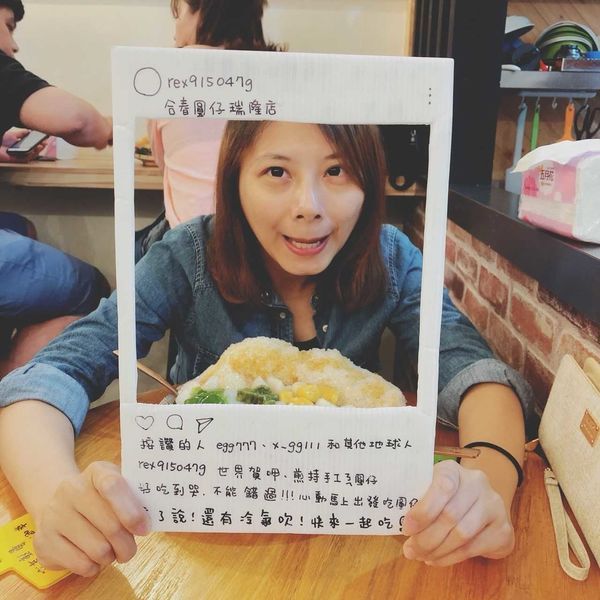 rex915047g
合春圓仔瑞隆店
按讚的人 egg777、x_gg111和其他地球人
rex915047g 世界賀呷、煎持手工ㄟ圓仔
好吃到哭.不能錯過!!!心動馬上出發吃圓仔
了說!還有冷氣吹!快來一起吃
五月花